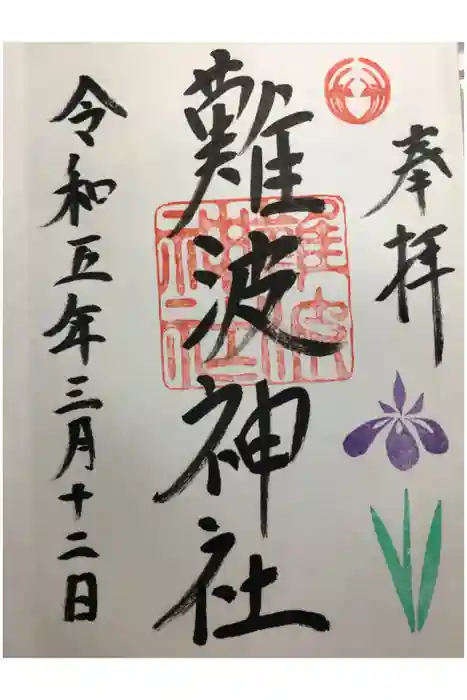 奉拝
難波神社
難波
神社
令和五年三月十二日